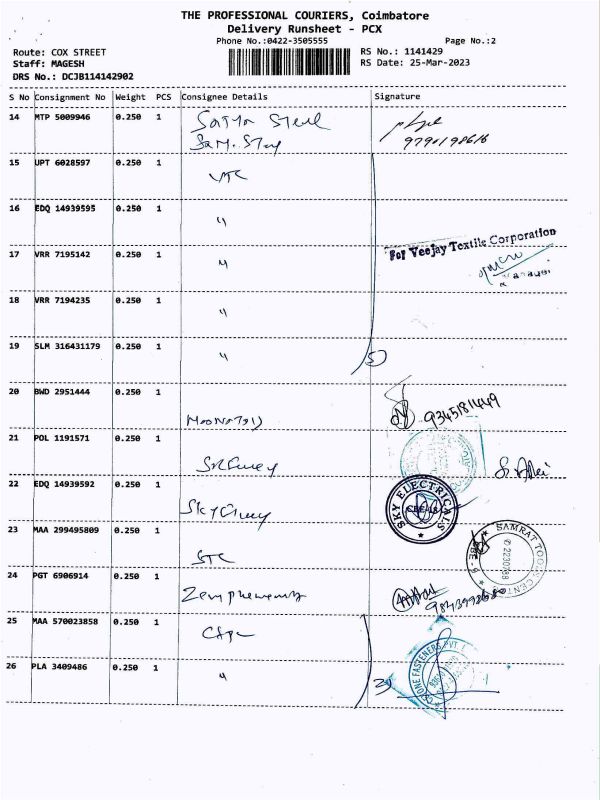 THE PROFESSIONAL COURIERS, Coimbatore
Delivery Runsheet - PCX
Phone No.:0422-3505555
Page No.:2
Route: COX STREET
RS No.: 1141429
Staff: MAGESH
RS Date: 25-Mar-2023
DRS No.: DCJB114142902
S No Consignment No Weight PCS Consignee Details Signature
14 MTP 5009946 0.250 1
9790198616
15 UPT 6028597 0.250 1 VTC
16 EDQ 14939595 0.250 1 "
For Veejay Textile Corporation
17 VRR 7195142 0.250 1 "
18 VRR 7194235 0.250 1 "
19 SLM 316431179 0.250 1 " 5
20 BWD 2951444 0.250 1
9345181449
21 POL 1191571 0.250 1
22 EDQ 14939592 0.250 1
SKY ELECTRICALS
CBE-18
23 MAA 299495809 0.250 1 STC
SAMRAT TOOL CENT
24 PGT 6906914 0.250 1
25 MAA 570023858 0.250 1
26 PLA 3409486 0.250 1 "
FASTENERS PVT.